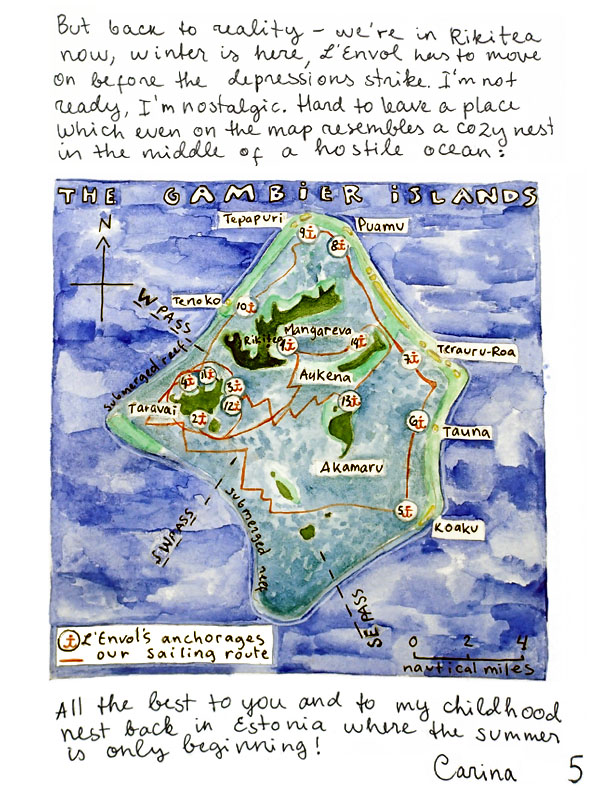 But back to reality - we're in Rikitea
now, winter is here, L'Envol has to move
on before the depressions strike. I'm not
ready, I'm nostalgic. Hard to leave a place
which even on the map resembles a cozy nest
in the middle of a hostile ocean:
THE GAMBIER iSLANDS
Tepapuri
Puamu
N
9
8
W PASS
Tenoko
10
Mangareva
Rikitea
1
14
Terauru-Roa
7
submerged reef
Aukena
4
11
3
12
13
Taravai
2
6
Tauna
Akamaru
5
Koaku
submerged reef
SW PASS
SE PASS
L'Envol's anchorages
our sailing route
0 2 4
nautical miles
All the best to you and to my childhood
nest back in Estonia where the summer
is only beginning!
Carina 5